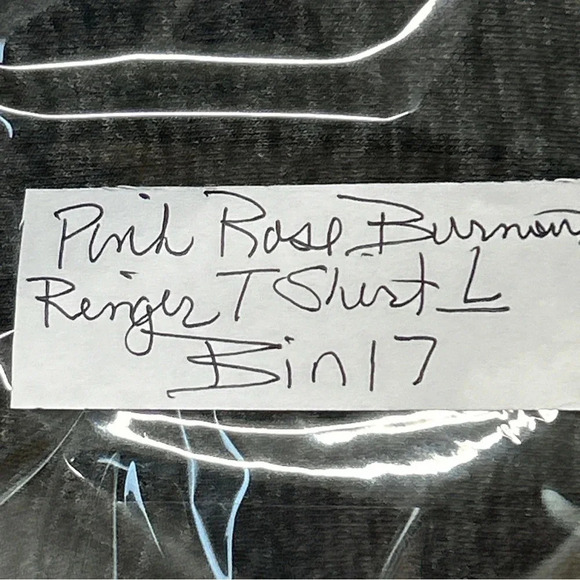 Pink Rose Burnout
Ringer T Shirt L
Bin 17